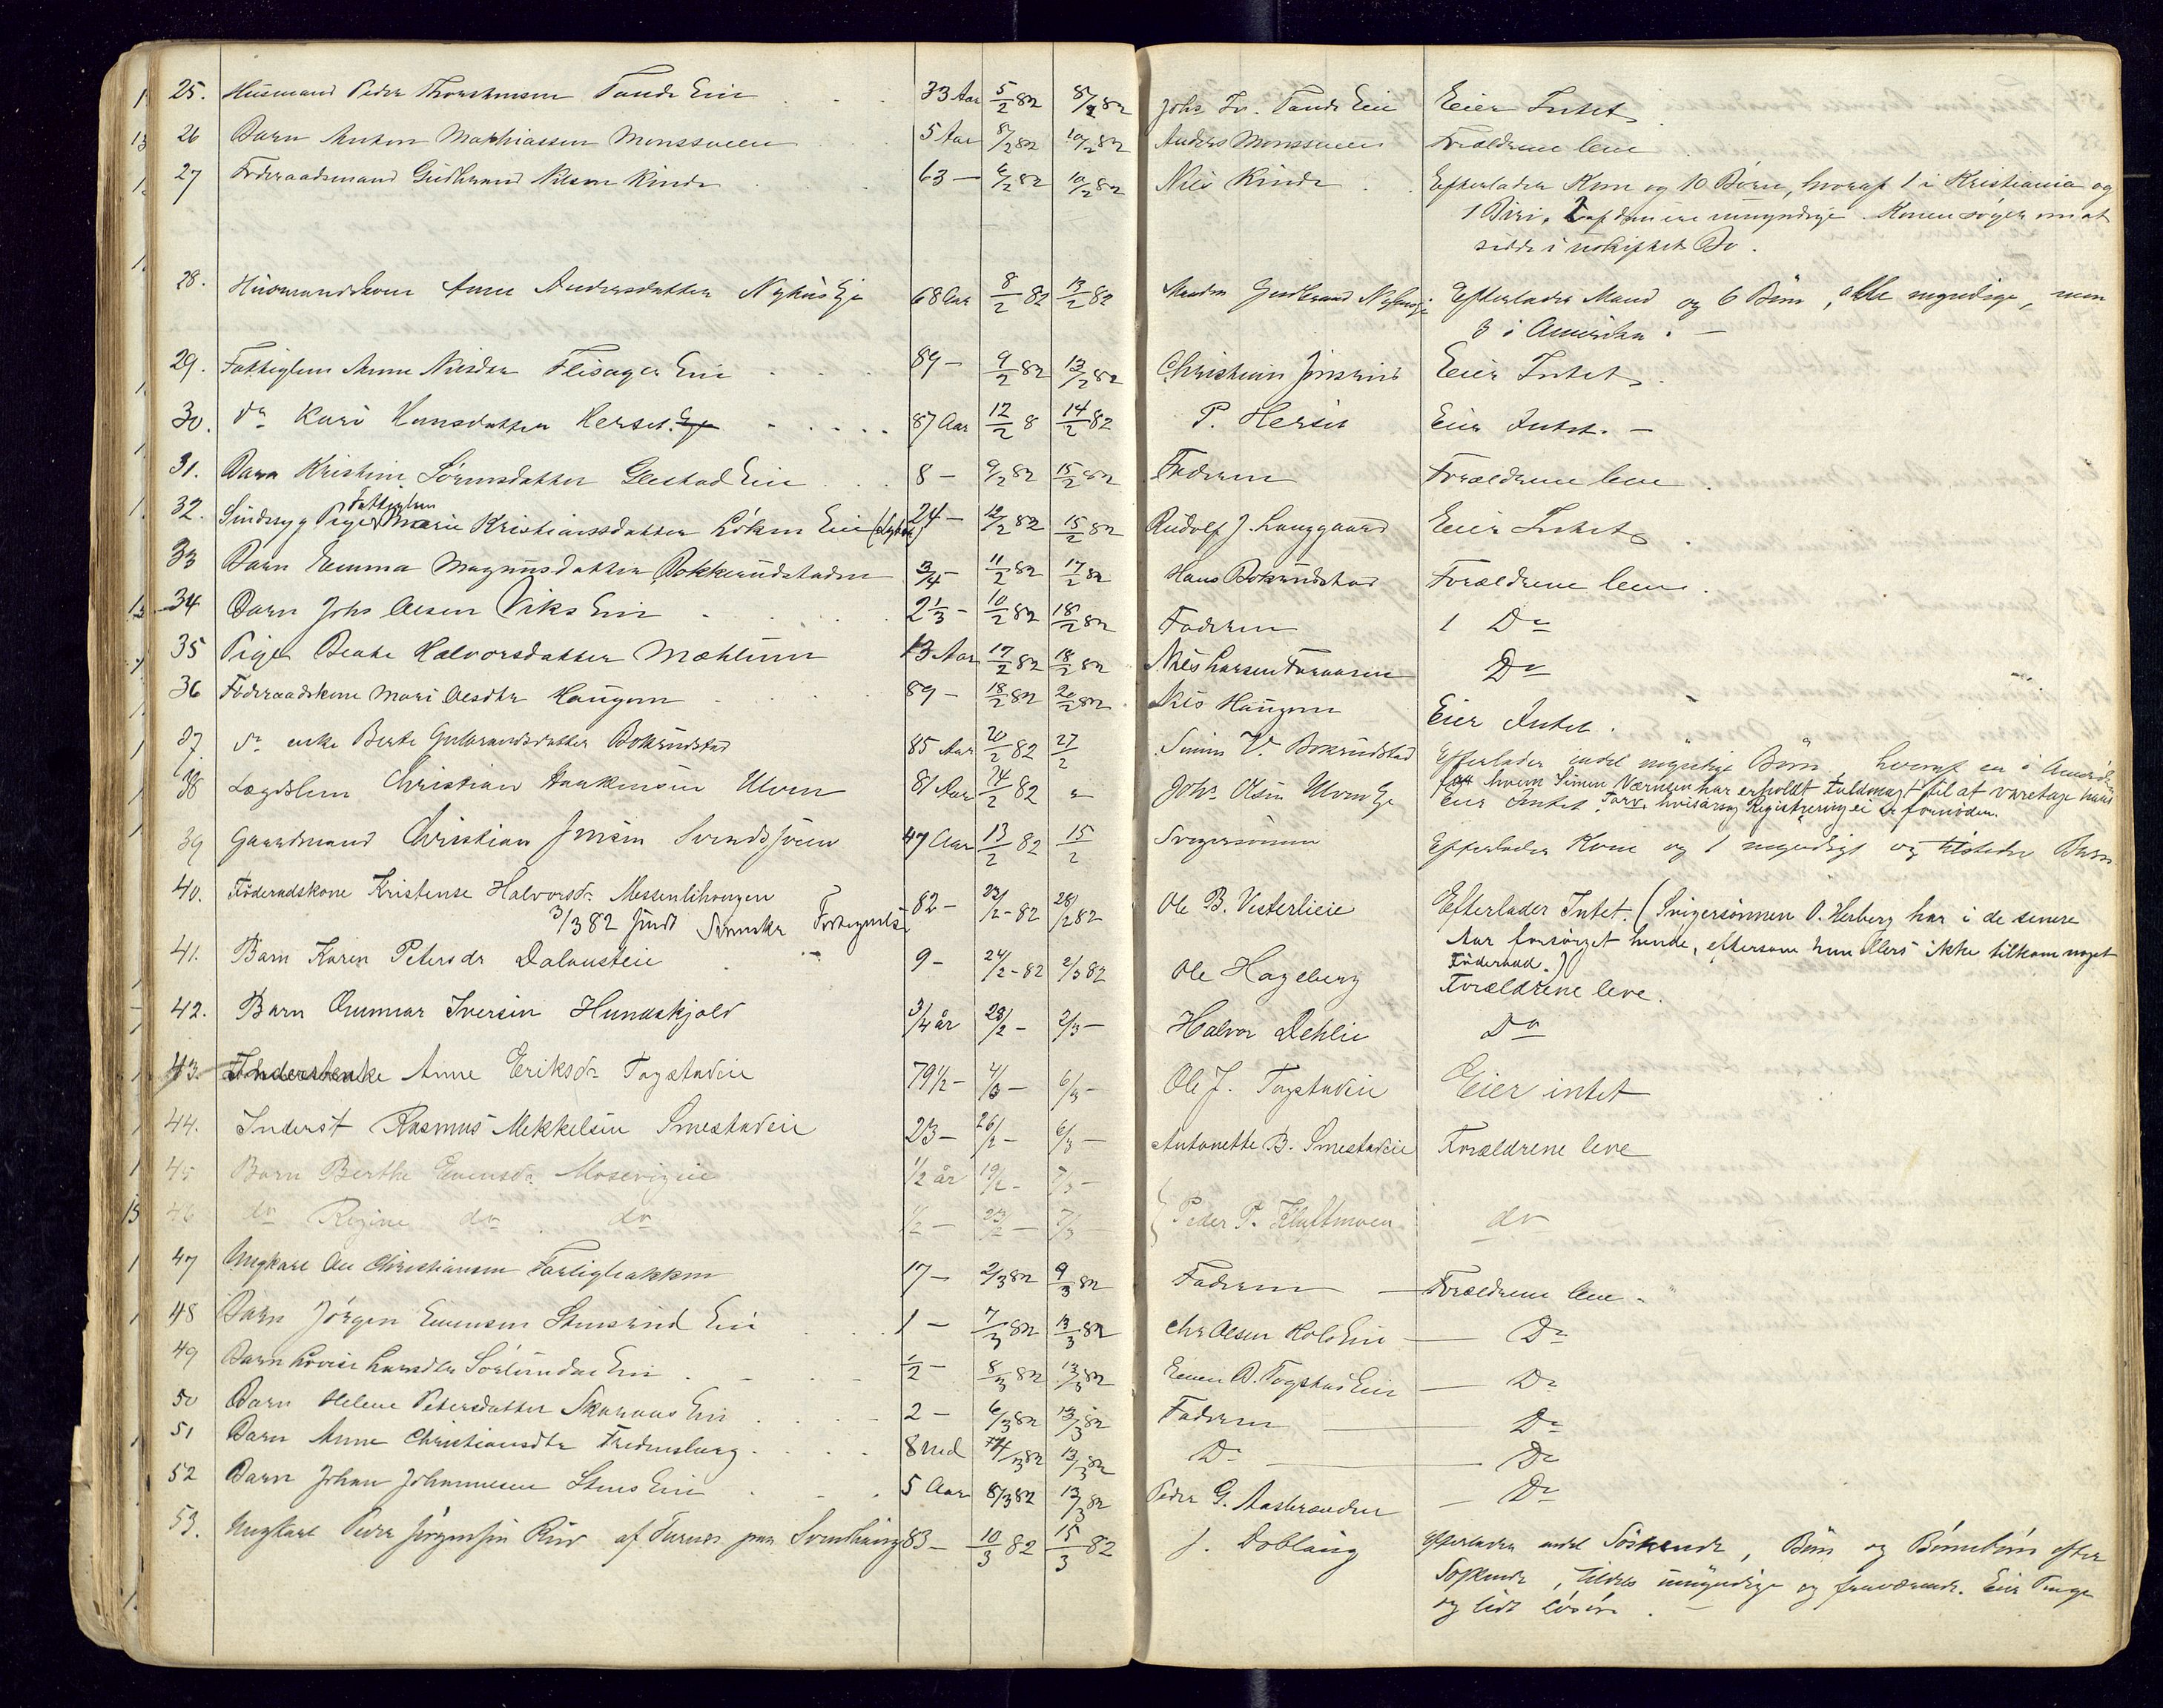 25. Husmand Peder Thorstensen Tande Eie . . . 33 Aar 5/2 82 8/2 82 Johs Tv. Tande Eie Eier Intet
26 Barn Anton Mathiassen Monssveen 5 Aar 8/2 82 10/2 82 Anders Monssveen Forældrene leve
27 Føderaadsmand Gudbrand Nilsen Rinde 63 — 6/2 82 10/2 82 Nils Rinde Efterlader Kone og 10 Børn, hvoraf 1 i Kristiania og
1 Biri, 2 af dem ere umyndige. Konen søger om at
sidde i uskiftet Bo.
28. Husmandskone Anne Andersdatter Nyhus Eje 68 Aar 8/2 82 13/2 82 Manden Gudbrand Nyhuseje Efterlader Mand og 6 Børn, alle myndige, men
3 i Amerika. —
29. Fattiglem Anne Nilsdtr Flisager Eie 89 — 9/2 82 13/2 82 Christian Jinsrud Eier Intet
30. do Kari Hansdatter Herset. 87 Aar 12/2 8 14/2 82 P. Herset Eier Intet. —
31. Barn Kristine Sørensdatter Glestad Eie 8 — 9/2 82 15/2 82 Faderen Forældrene leve
32. Sindssyg Pige Fattiglem Marie Kristiansdatter Løken Eie 24 — 12/2 82 15/2 82 Rudolf J. Langgaard Eier Intet
33 Barn Emma Magnusdatter Bokkerudstaden 3/4 — 11/2 82 17/2 82 Hans Bokrudstad Forældrene leve
34 Barn Johs Olsen Viks Eie 2 1/3 — 10/2 82 18/2 82 Faderen 1 Do
35 Pige Beate Halvorsdatter Mæhlum 13 Aar 17/2 82 18/2 82 Nils Larsen Furaasen Do
36 Føderaadskone Mari Olsdtr Haugen 89 — 18/2 82 20/2 82 Nils Haugen Eier Intet.
37. do enke Berte Gulbrandsdatter Bokrudstad 85 Aar 20/2 82 27/2 Simen V. Bokrudstad Efterlader myndige Børn hvoraf en i Amerika
for hvem Simen Værnsen har erholdt Fuldmagt til at varetage hans
Tarv, hvisaarsag Registrering ei er fornøden.
38 Lægdslem Christian Haakensen Ulven 81 Aar 24/2 82 " Johs Olsen Ulven Eje Eier Intet
39 Gaardmand Christian Jensen Svendssveen 47 Aar 13/2 82 15/2 Svigersønnen Efterlader Kone og 1 myndigt og tilstede Barn
40. Føderadskone Kristense Halvorsdr. Messenlihaugen 82 — 23/2 – 82 28/2 82 Ole B. Vesterlieie Efterlader Intet. (Svigersønnen O. Herberg har i de senere
Aar forsørget hende, eftersom hun ellers ikke tilkom noget
Føderaad.)
3/3 82 sendt Fortegnelse
41. Barn Karen Petersdr Dalausteie 9 — 24/2 – 82 2/3 82 Ole Hageberg Forældrene leve.
42. Barn Gunnar Iversen Hundskjold 3/4 år 28/2 — 2/3 — Halvor Dehlie Do
43. Inderstenke Anne Eriksdr Togstadeie 79 1/2 — 4/3 — 6/3 — Ole J. Togstadeie Eier intet
44. Inderst Rasmus Mikkelsen Smestadeie 23 — 26/2 — 6/3 — Antonette B. Smestadeie Forældrene leve
45 Barn Berthe Evensdr Mosevigeie 1/2 år 19/2 — 7/3 —
46 do Regine do do 1/2 — 23/2 — 7/3 Peder P. Kluftmoen do
47 Ungkarl Ole Christiansen Farligbakken 17 — 2/3 82 9/3 82 Faderen — Forældrene leve.
48 Barn Jørgen Evensen Stensrud Eie 1 — 7/3 82 13/3 82 Chr Olsen Hols Eie — Do
49 Barn Lovise Larsdtr Sørlundse Eie 1/2 — 8/3 82 13/3 82 Even B. Togstad Eie — Do
50 Barn Helene Petersdatter Skaraas Eie 2 — 6/3 82 13/3 82 Faderen — Do
51 Barn Anne Christiansdtr Fredensborg 8 Md 7/3 82 13/3 82 Do — Do
52 Barn Johan Johannesen Stens Eie 5 Aar 8/3 82 13/3 82 Peder G. Aasbrænden — Do
53. Ungkarl Peder Jørgensen Rud af Furnes paa Svendhaug 83 — 10/3 82 15/3 82 J. Doblaug Efterlader endel Søskende, Børn og Børnebørn efter
Søskende, tildels umyndige og fraværende. Eier Penge
og lidt Løsøre.